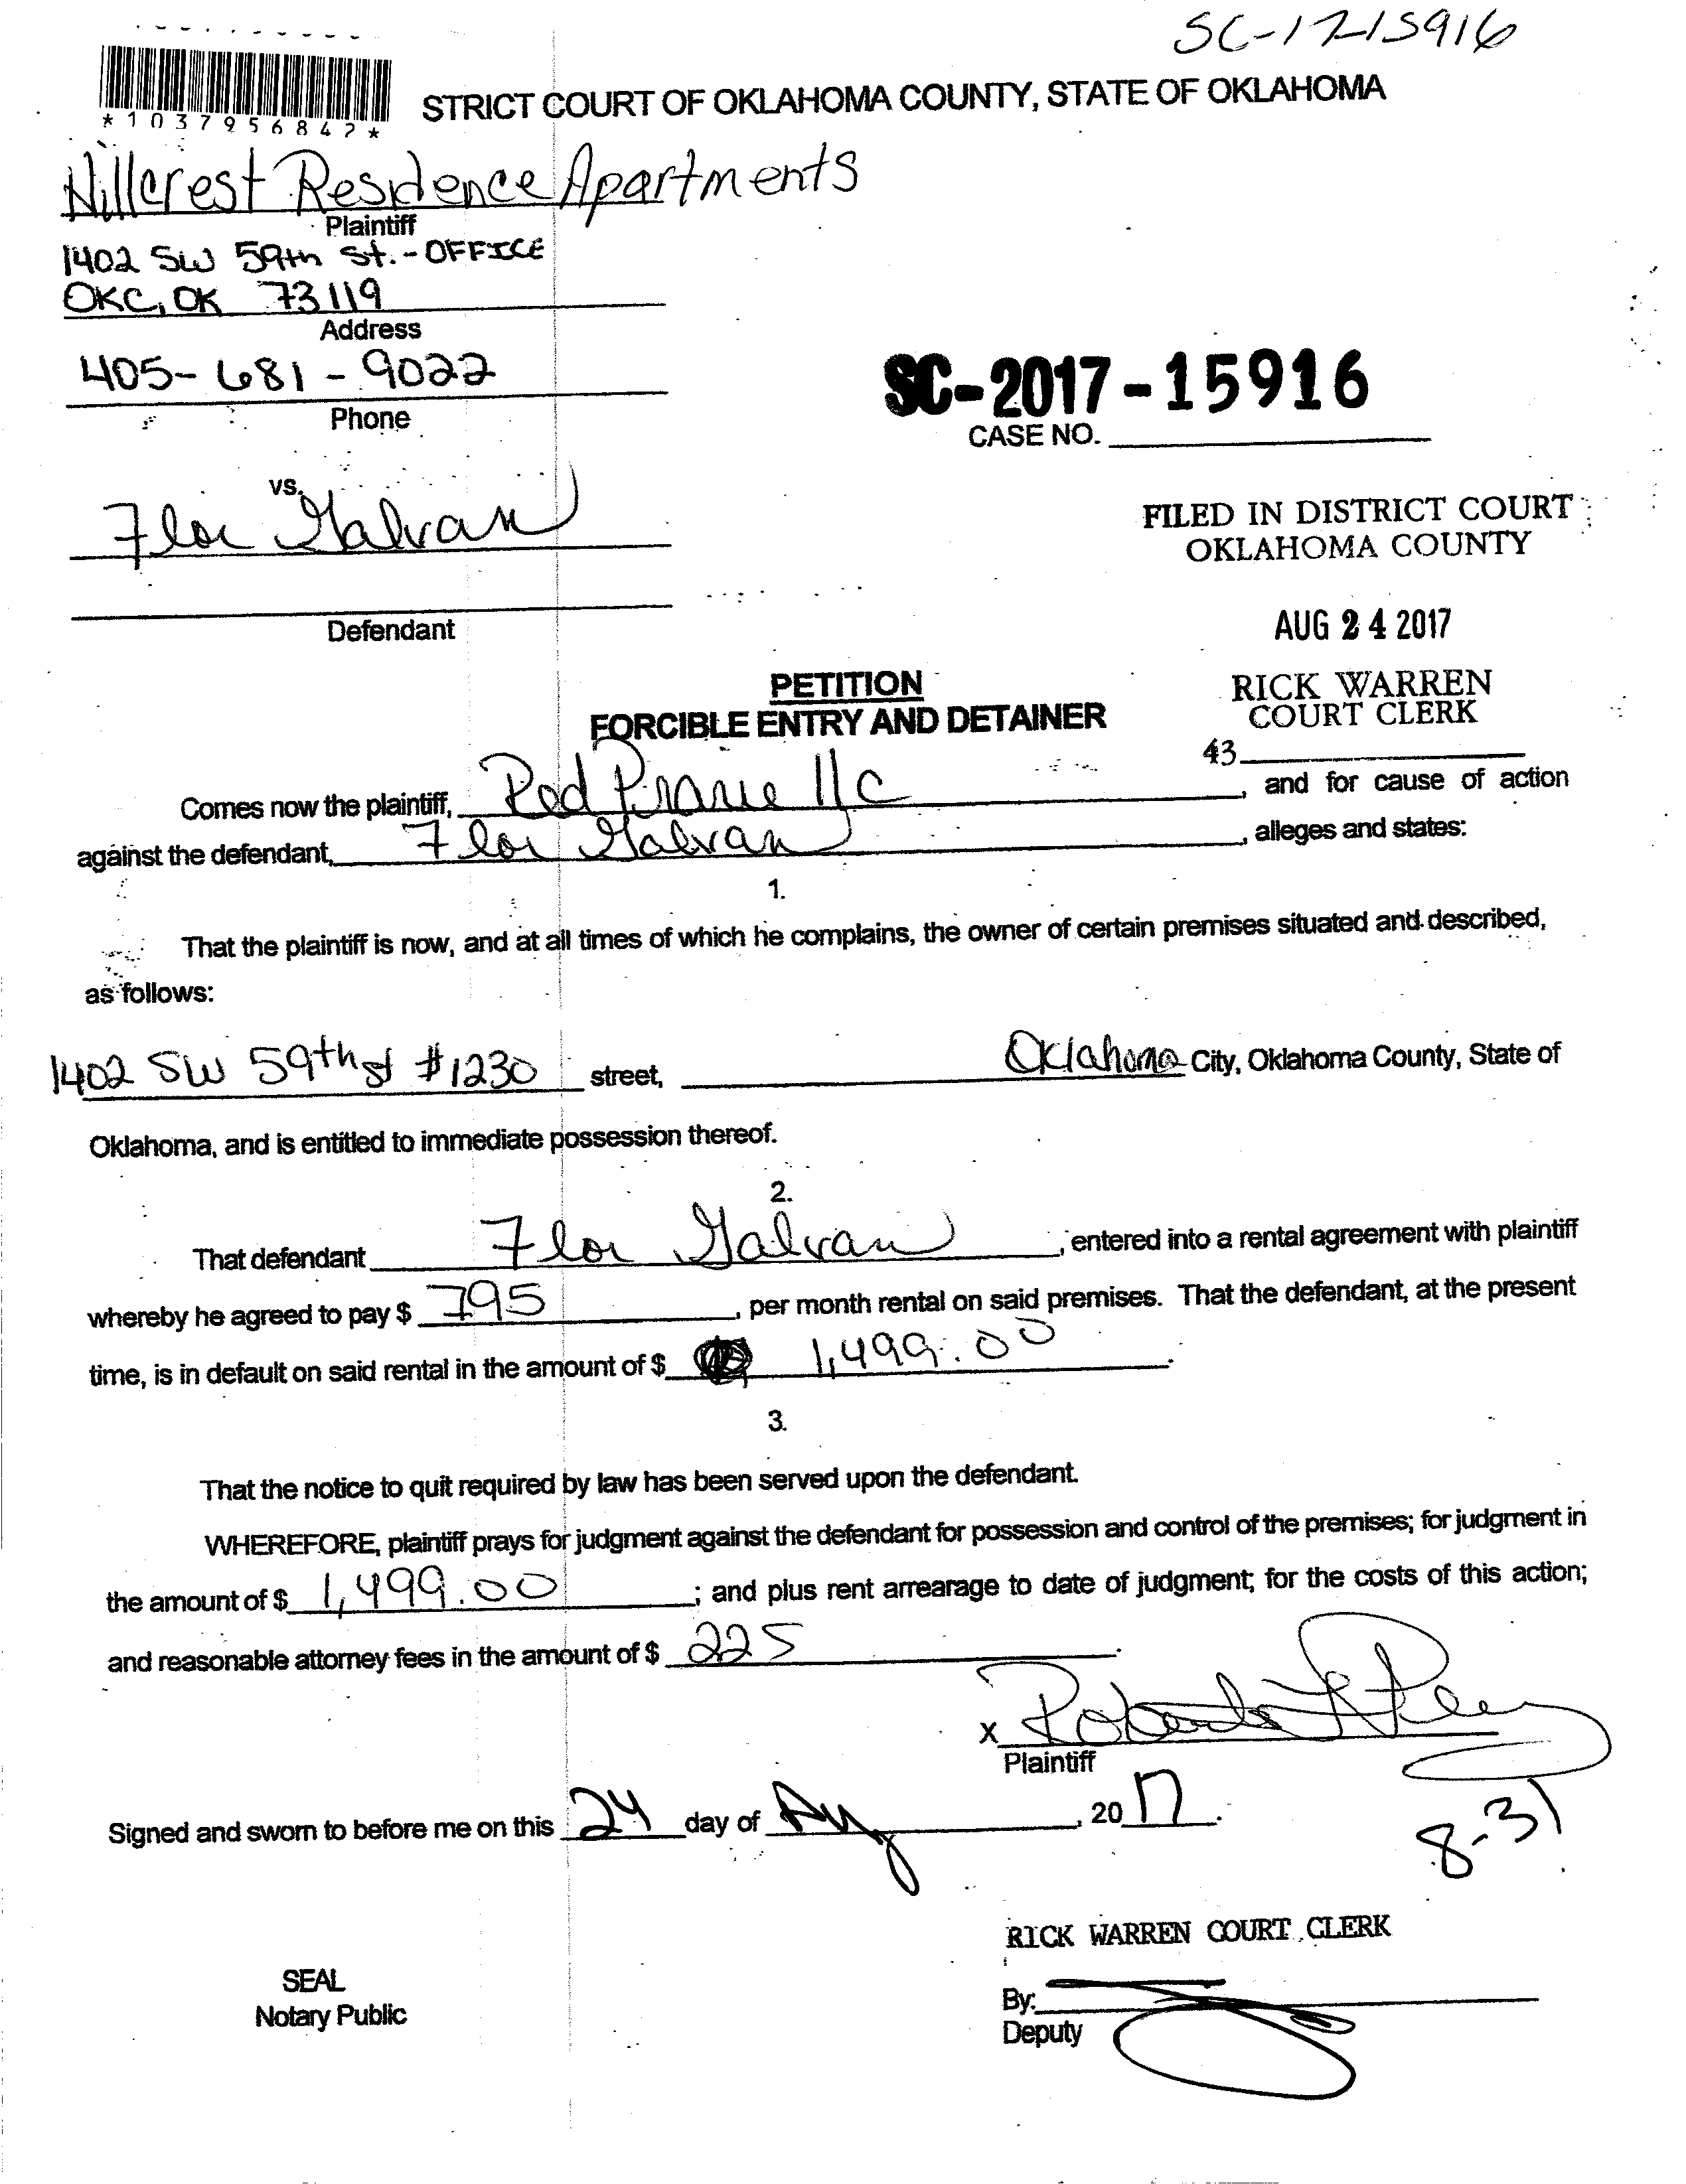 SC-17-15916
*1037956842*
STRICT COURT OF OKLAHOMA COUNTY, STATE OF OKLAHOMA
Hillcrest Residence Apartments
Plaintiff
1402 SW 59th St. - OFFICE
OKC, OK 73119
Address
405-681-9022
Phone
SC-2017-15916
CASE NO.
vs.
Flor Galvan
Defendant
FILED IN DISTRICT COURT
OKLAHOMA COUNTY
AUG 24 2017
RICK WARREN
COURT CLERK
43
PETITION
FORCIBLE ENTRY AND DETAINER
Comes now the plaintiff, Red Prarie llc, and for cause of action
against the defendant, Flor Galvan, alleges and states:
1.
That the plaintiff is now, and at all times of which he complains, the owner of certain premises situated and described,
as follows:
1402 SW 59th st #1230 street, Oklahoma City, Oklahoma County, State of
Oklahoma, and is entitled to immediate possession thereof.
2.
That defendant Flor Galvan, entered into a rental agreement with plaintiff
whereby he agreed to pay $ 795, per month rental on said premises. That the defendant, at the present
time, is in default on said rental in the amount of $ 1,499.00.
3.
That the notice to quit required by law has been served upon the defendant.
WHEREFORE, plaintiff prays for judgment against the defendant for possession and control of the premises; for judgment in
the amount of $ 1,499.00; and plus rent arrearage to date of judgment; for the costs of this action;
and reasonable attorney fees in the amount of $ 225.
X
Plaintiff
Signed and sworn to before me on this 24 day of Aug, 20 17.
8-31
RICK WARREN COURT CLERK
SEAL
Notary Public
By:
Deputy